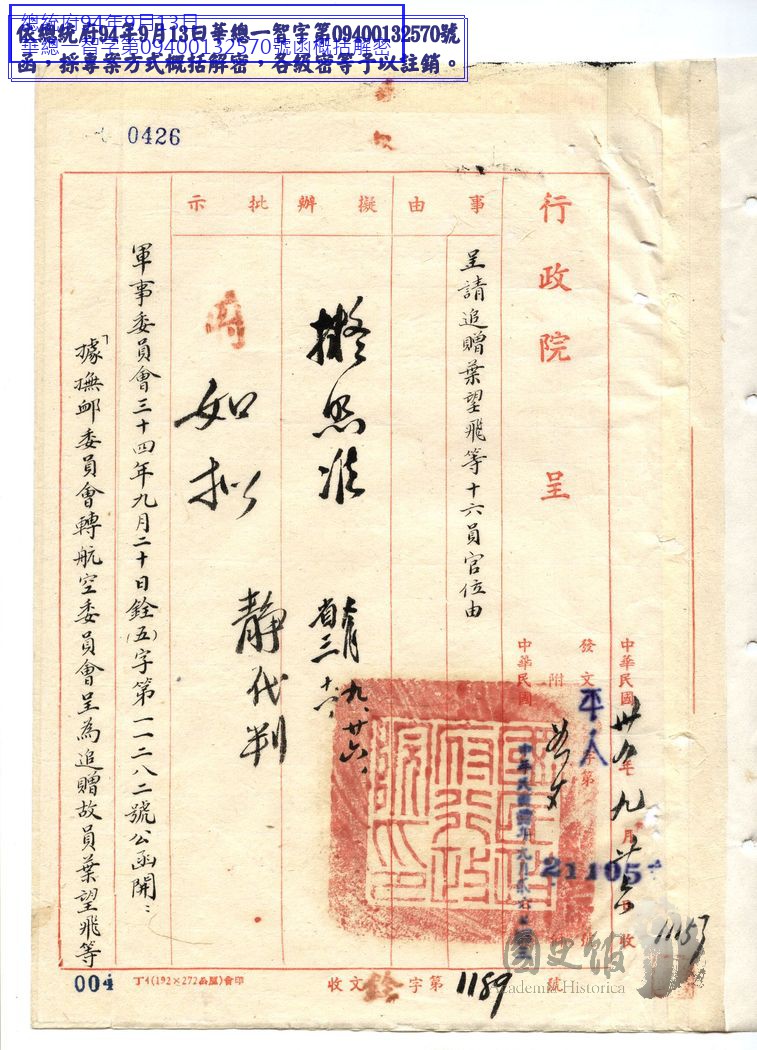 總統府94年9月13日
華總一智字第09400132570號函概括解密
依總統府94年9月13日華總一智字第09400132570號
函，採專案方式概括解密，各級密等予以註銷。
0426
行政院呈
事由
擬辦
批示
呈請追贈葉望飛等十六員官位由
擬照准
九、廿六、
如拟
靜代判
軍事委員會三十四年九月二十日銓(五)字第一一二八二號公函開：
「據撫卹委員會轉航空委員會呈為追贈故員葉望飛等
中華民國
卅四年九月
日收
發文
平人
字第
21105
號
附
中華民國
國民政府行政院印
1157
國史館
Academia Historica
收文銓字第1189號
004
丁4(192×272公厘)會印